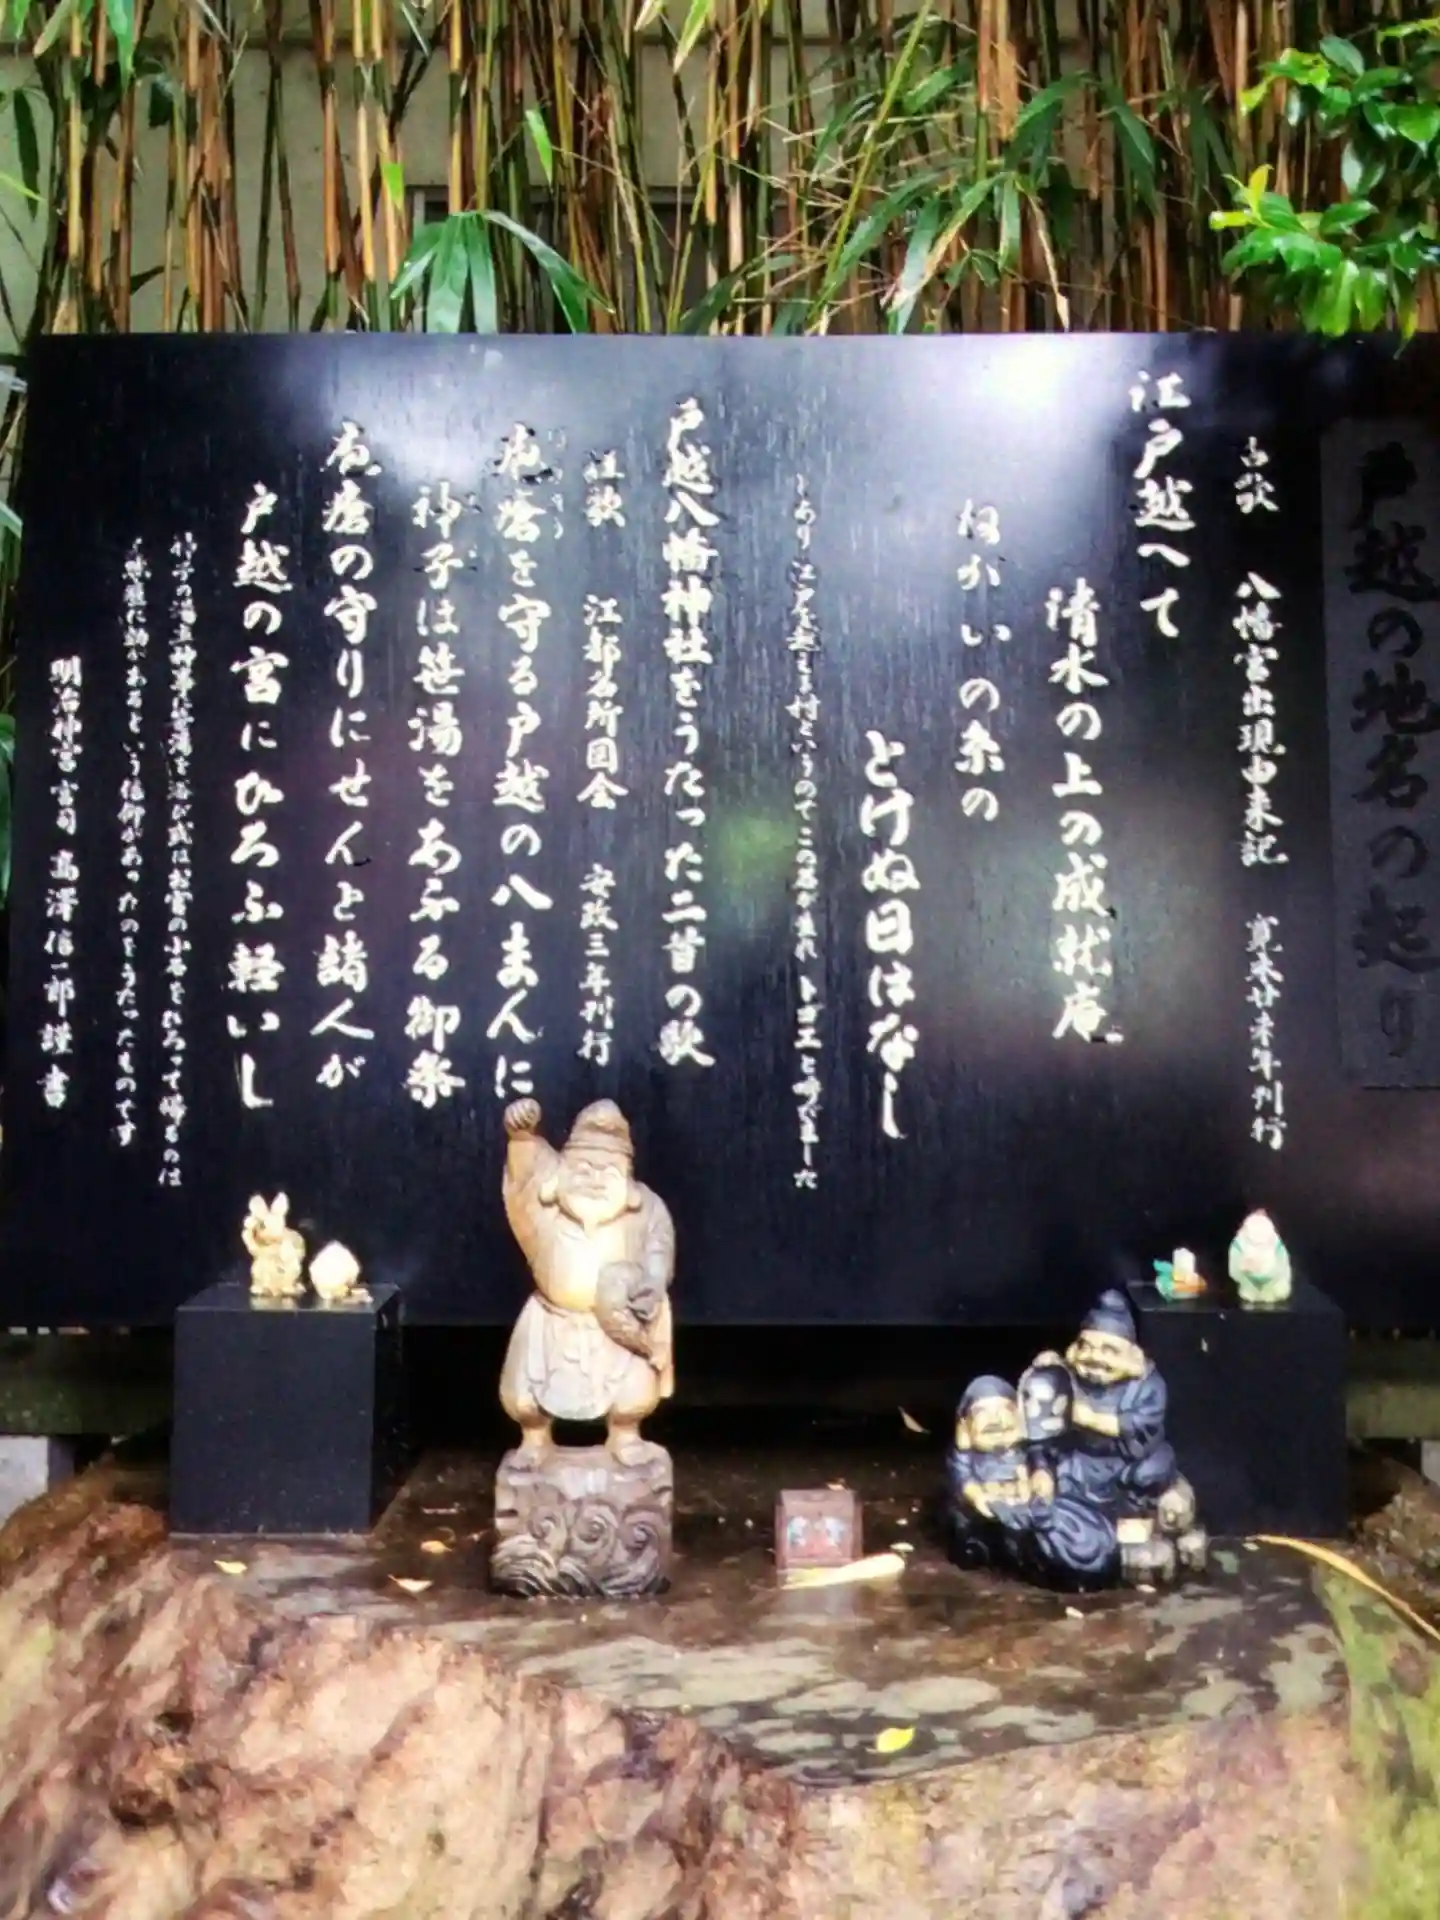 戸越の地名の起り
古歌 八幡宮出現由来記 寛永廿年刊行
江戸越へて
清水の上の成就庵
ねがいの糸の
とけぬ日はなし
とあり 江戸を越える村というのでこの名が生れ トゴエと呼びました
戸越八幡神社をうたった二昔の歌
江都名所図会 安政三年刊行
疱瘡を守る戸越の八まんに
神子は笹湯をあふる御楽
疱瘡の守りにせんと諸人が
戸越の宮にひろふ軽いし
神子の湯立神事に笹湯を浴び或はお宮の小石をひろって帰るのは
疱瘡に効があるという信仰があったのをうたったものです
明治神宮宮司 高澤信一郎 謹書